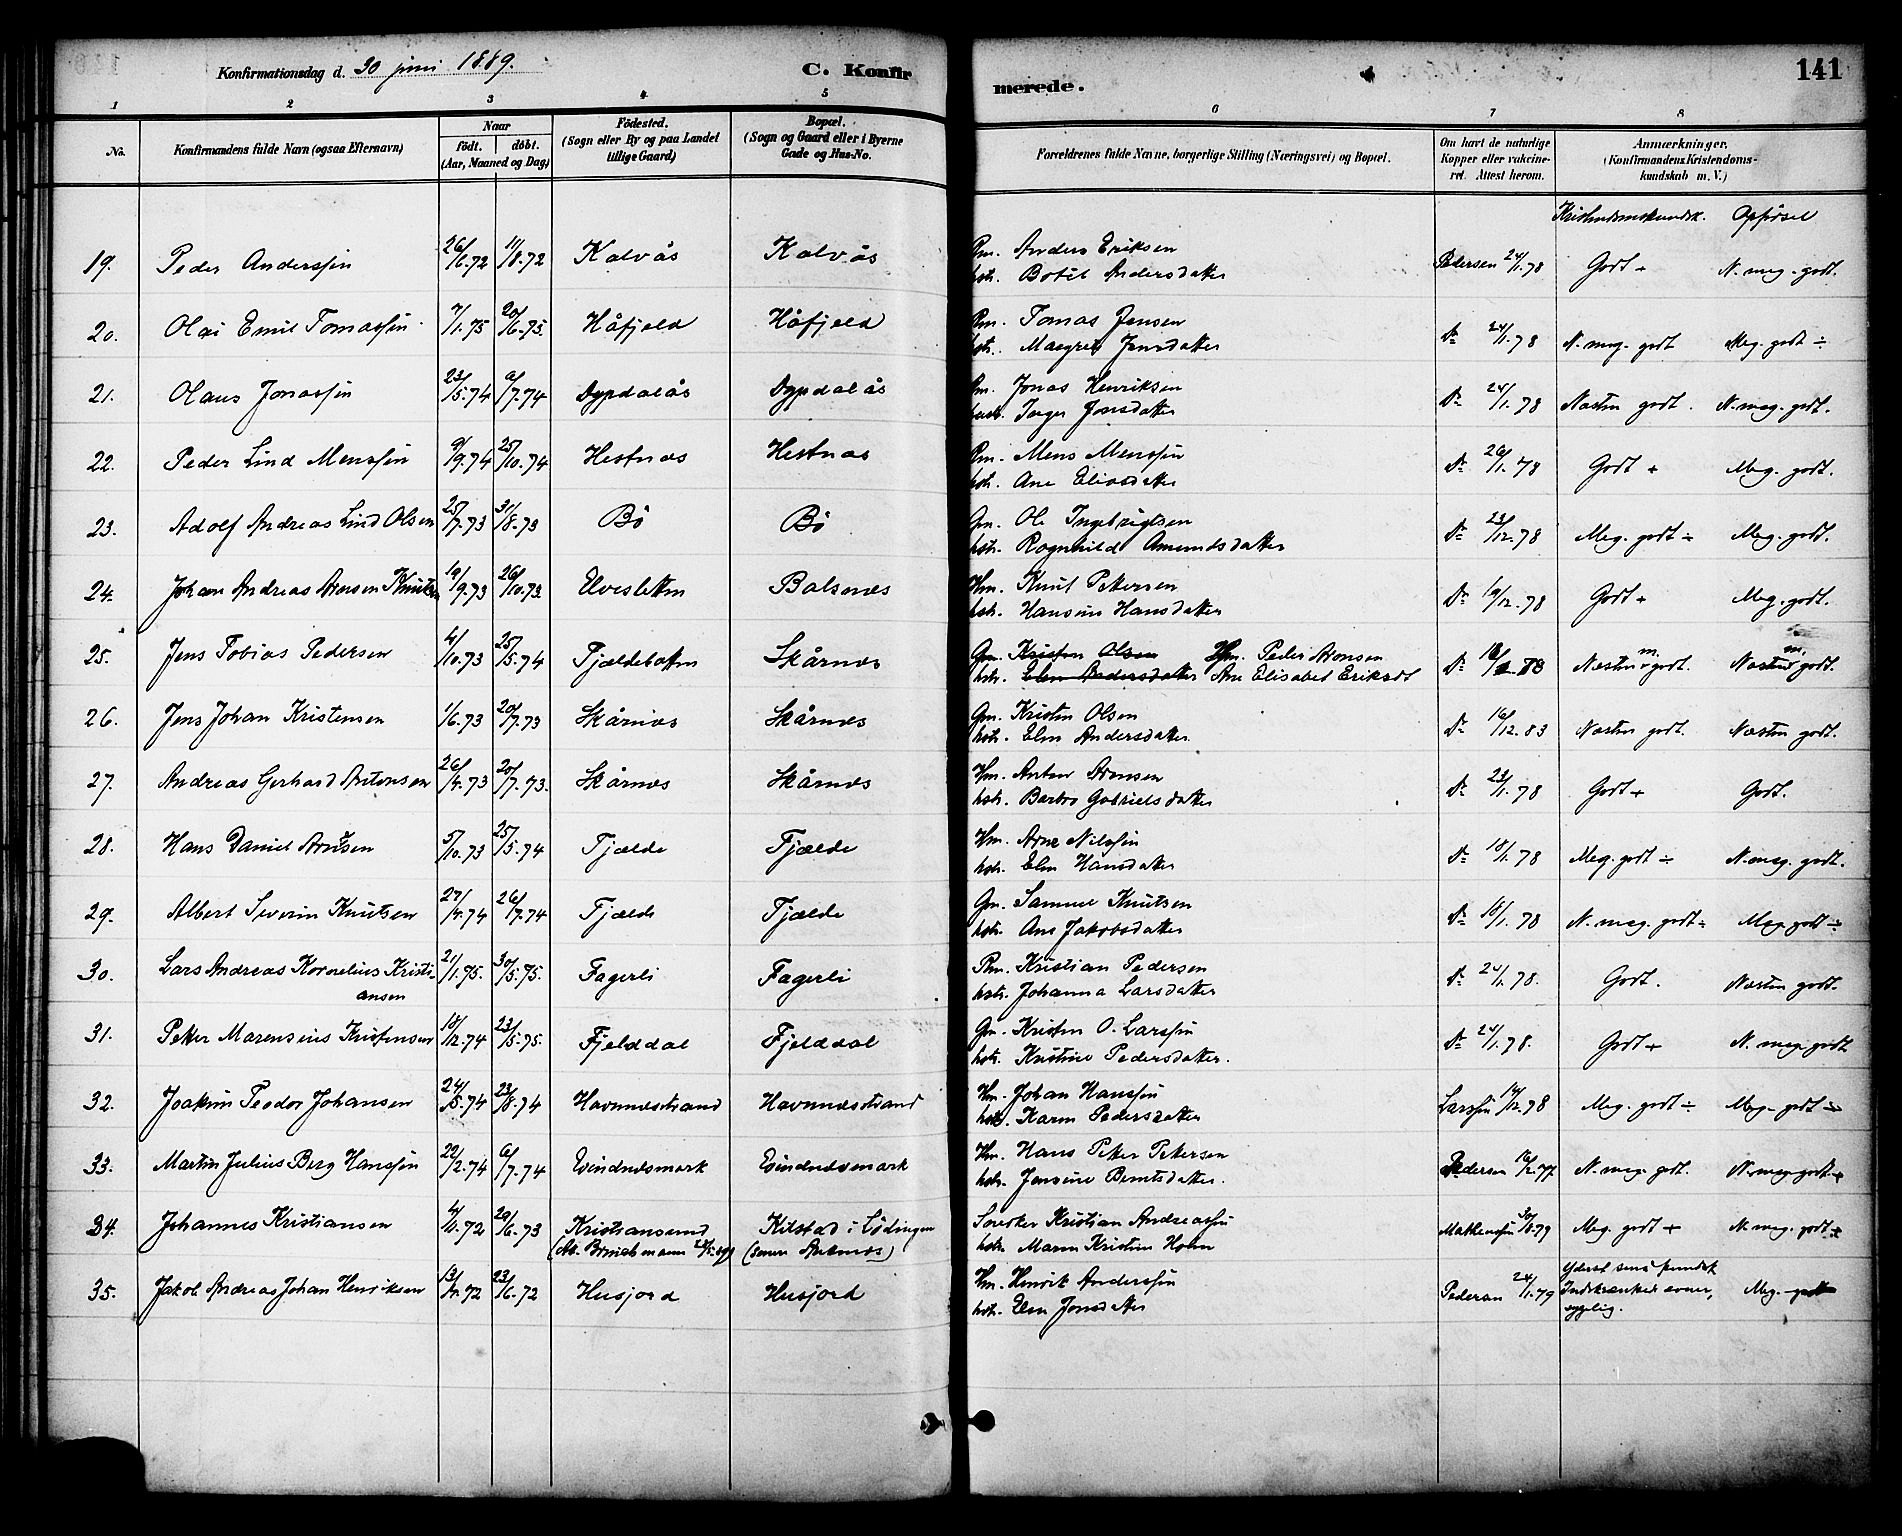 Konfirmationsdag d. 30 juni 1889. C. Konfirmerede. 141
1 2 3 4 5 6 7 8
No. Konfirmandens fulde Navn (ogsaa Efternavn) Naar født. døbt. (Aar, Maaned og Dag) Fødested. (Sogn eller By og paa Landet tillige Gaard) Bopæl. (Sogn og Gaard eller i Byerne Gade og Hus-No. Forældrenes fulde Navne, borgerlige Stilling (Næringsvei) og Bopæl. Om havt de naturlige Kopper eller vakcineret. Attest herom. Anmærkninger, (Konfirmandens Kristendomskundskab m. V.)
Kristendomskundsk. Opførsel
19. Peder Anderssøn 26/6.72 11/8.72 Kalvås Kalvås Rm. Anders Eriksen
hstr. Botil Andersdatter Pedersen 24/1.78 Godt + N. meg. godt.
20. Olai Emil Tomassøn 7/1.75 20/6.75 Håfjeld Håfjeld Rm. Tomas Jensen
hstr. Masgret Jensdatter Do 24/1.78 N. meg. godt Meg. godt ÷
21. Olaus Jonassøn 23/5.74 6/7.74 Dypdalås Dypdalås Rm. Jonas Henriksen
hustr. Inger Jonsdatter Do 24/1.78 Næsten godt. N. meg. godt.
22. Peder Lind Menssøn 9/9.74 25/10.74 Hestnæs Hestnæs Rm. Mens Menssøn
hstr. Ane Eliasdatter Do 26/1.78 Godt + Meg. godt.
23. Adolf Andreas Lind Olsen 25/7.73 31/8.73 Bø Bø Gm. Ole Ingebrigtsen
hstr. Ragnhild Amundsdatter Do 23/12.78 Meg. godt ÷ Meg. godt.
24. Johan Andreas Arnsen Knutsen 19/9.73 26/10.73 Elvesletten Balsnes Hm. Knut Petersen
hstr. Hansine Hansdatter Do 19/12.78 Godt + Meg. godt.
25. Jens Tobias Pedersen 4/10.73 25/5.74 Tjeldebotten Skårnes Gm. Kristen Olsen Hm. Peder Aronsen
hstr. Elen Andersdatter Ane Elisabet Eriksdt Do Næsten m. godt. Næsten m. godt.
26. Jens Johan Kristensen 1/6.73 20/7.73 Skårnes Skårnes Gm. Kristen Olsen
hstr. Elen Andersdatter. Do 16/12.83 Næsten godt. Næsten godt.
27. Andreas Gerhard Antonsen 26/4.73 20/7.73. Skårnes Skårnes Hm. Anton Aronsen
hstr. Barbro Gabrielsdatter Do 23/1.78 Godt + Godt.
28. Hans Daniel Arnesen 5/10.73 25/5.74 Tjælde Tjælde Hm. Arne Nilssøn
hstr. Elen Hansdatter Do 18/1.78 Meg. godt ÷ N. meg. godt.
29. Albert Severin Knutsen 27/4.74 26/7.74 Tjælde Tjælde Gm. Samuel Knutsen
hstr. Ane Jakobsdatter Do 18/1.78 N. meg. godt ÷ Meg. godt ÷
30. Lars Andreas Kornelius Kristi-
ansen 21/1.75. 30/5.75. Fagerli Fagerli Rm. Kristian Pedersen
hstr. Johanna Larsdatter Do 24/1.78. Godt. Næsten godt.
31. Peter Marensius Kristensen 18/12.74 23/5.75. Fjelddal Fjelddal Gm. Kristen O. Larssøn
hstr. Kristine Pedersdatter. Do 24/1.78. Godt + N. meg. godt
32. Joakim Teodor Johansen 24/5.74 23/8.74 Havnnesstrand Havnnesstrand Hm. Johan Hanssøn
hstr. Karen Pedersdatter Larssøn 14/12.78 Meg. godt ÷ Meg. godt ÷
33. Martin Julius Berg Hanssøn 22/2.74 6/7.74 Evindnesmark Evindnesmark Hm. Hans Peter Petersen
hstr. Jensine Berntsdatter. Pedersen N. meg. godt. N. meg. godt +
34. Johannes Kristiansen 4/11.72 29/6.73 Kristiansund Kitstad i Lødingen Snedker Kristian Andreassøn
hstr. Maren Kristine Holm Mathiassøn Meg. godt + N. meg. godt +
35. Jakob Andreas Johan Henriksen 23/6.72 Husjord Husjord Hm. Henrik Anderssøn
hstr. Elen Jonsdatter Pedersen 24/1.79 yderst små kundsk
Indskrænkede evner, Meg. godt
sygelig.